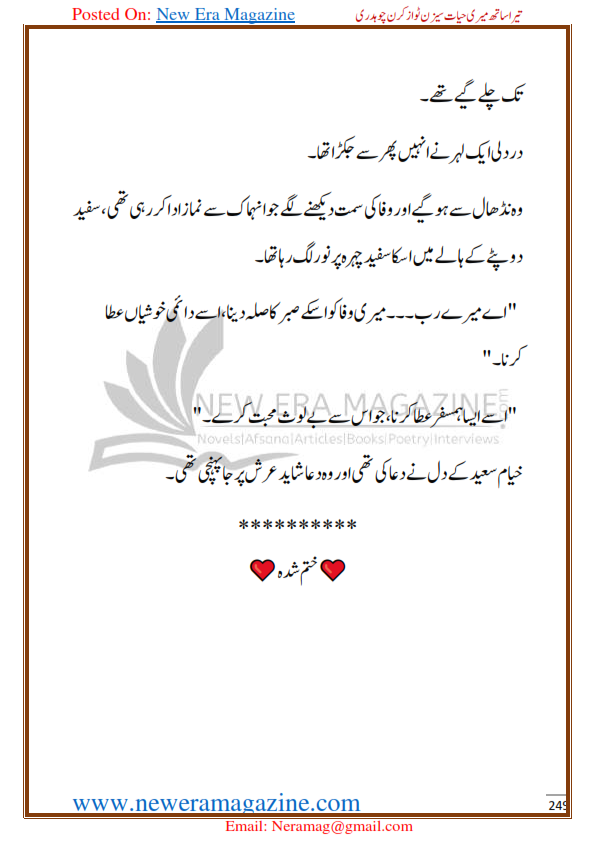 Posted On: New Era Magazine
تیرا ساتھ میری حیات سیزن ٹواز کرن چوہدری
تک چلے گیے تھے۔
درد لی ایک لہر نے انہیں پھر سے جکڑا تھا۔
وہ نڈھال سے ہو گیے اور وفا کی سمت دیکھنے لگے جو انہماک سے نماز ادا کر رہی تھی، سفید
دوپٹے کے ہالے میں اسکا سفید چہرہ پر نور لگ رہا تھا۔
"اے میرے رب۔۔۔ میری وفا کو اسکے صبر کا صلہ دینا، اسے دائمی خوشیاں عطا
کرنا۔"
"اسے ایسا ہمسفر عطا کرنا، جو اس سے بے لوث محبت کرے۔"
NEW ERA MAGAZINE.com
Novels|Afsana|Articles|Books|Poetry|Interviews
خیام سعید کے دل نے دعا کی تھی اور وہ دعا شاید عرش پر جا پہنچی تھی۔
**********
❤ختم شدہ❤
www.neweramagazine.com
249
Email: Neramag@gmail.com